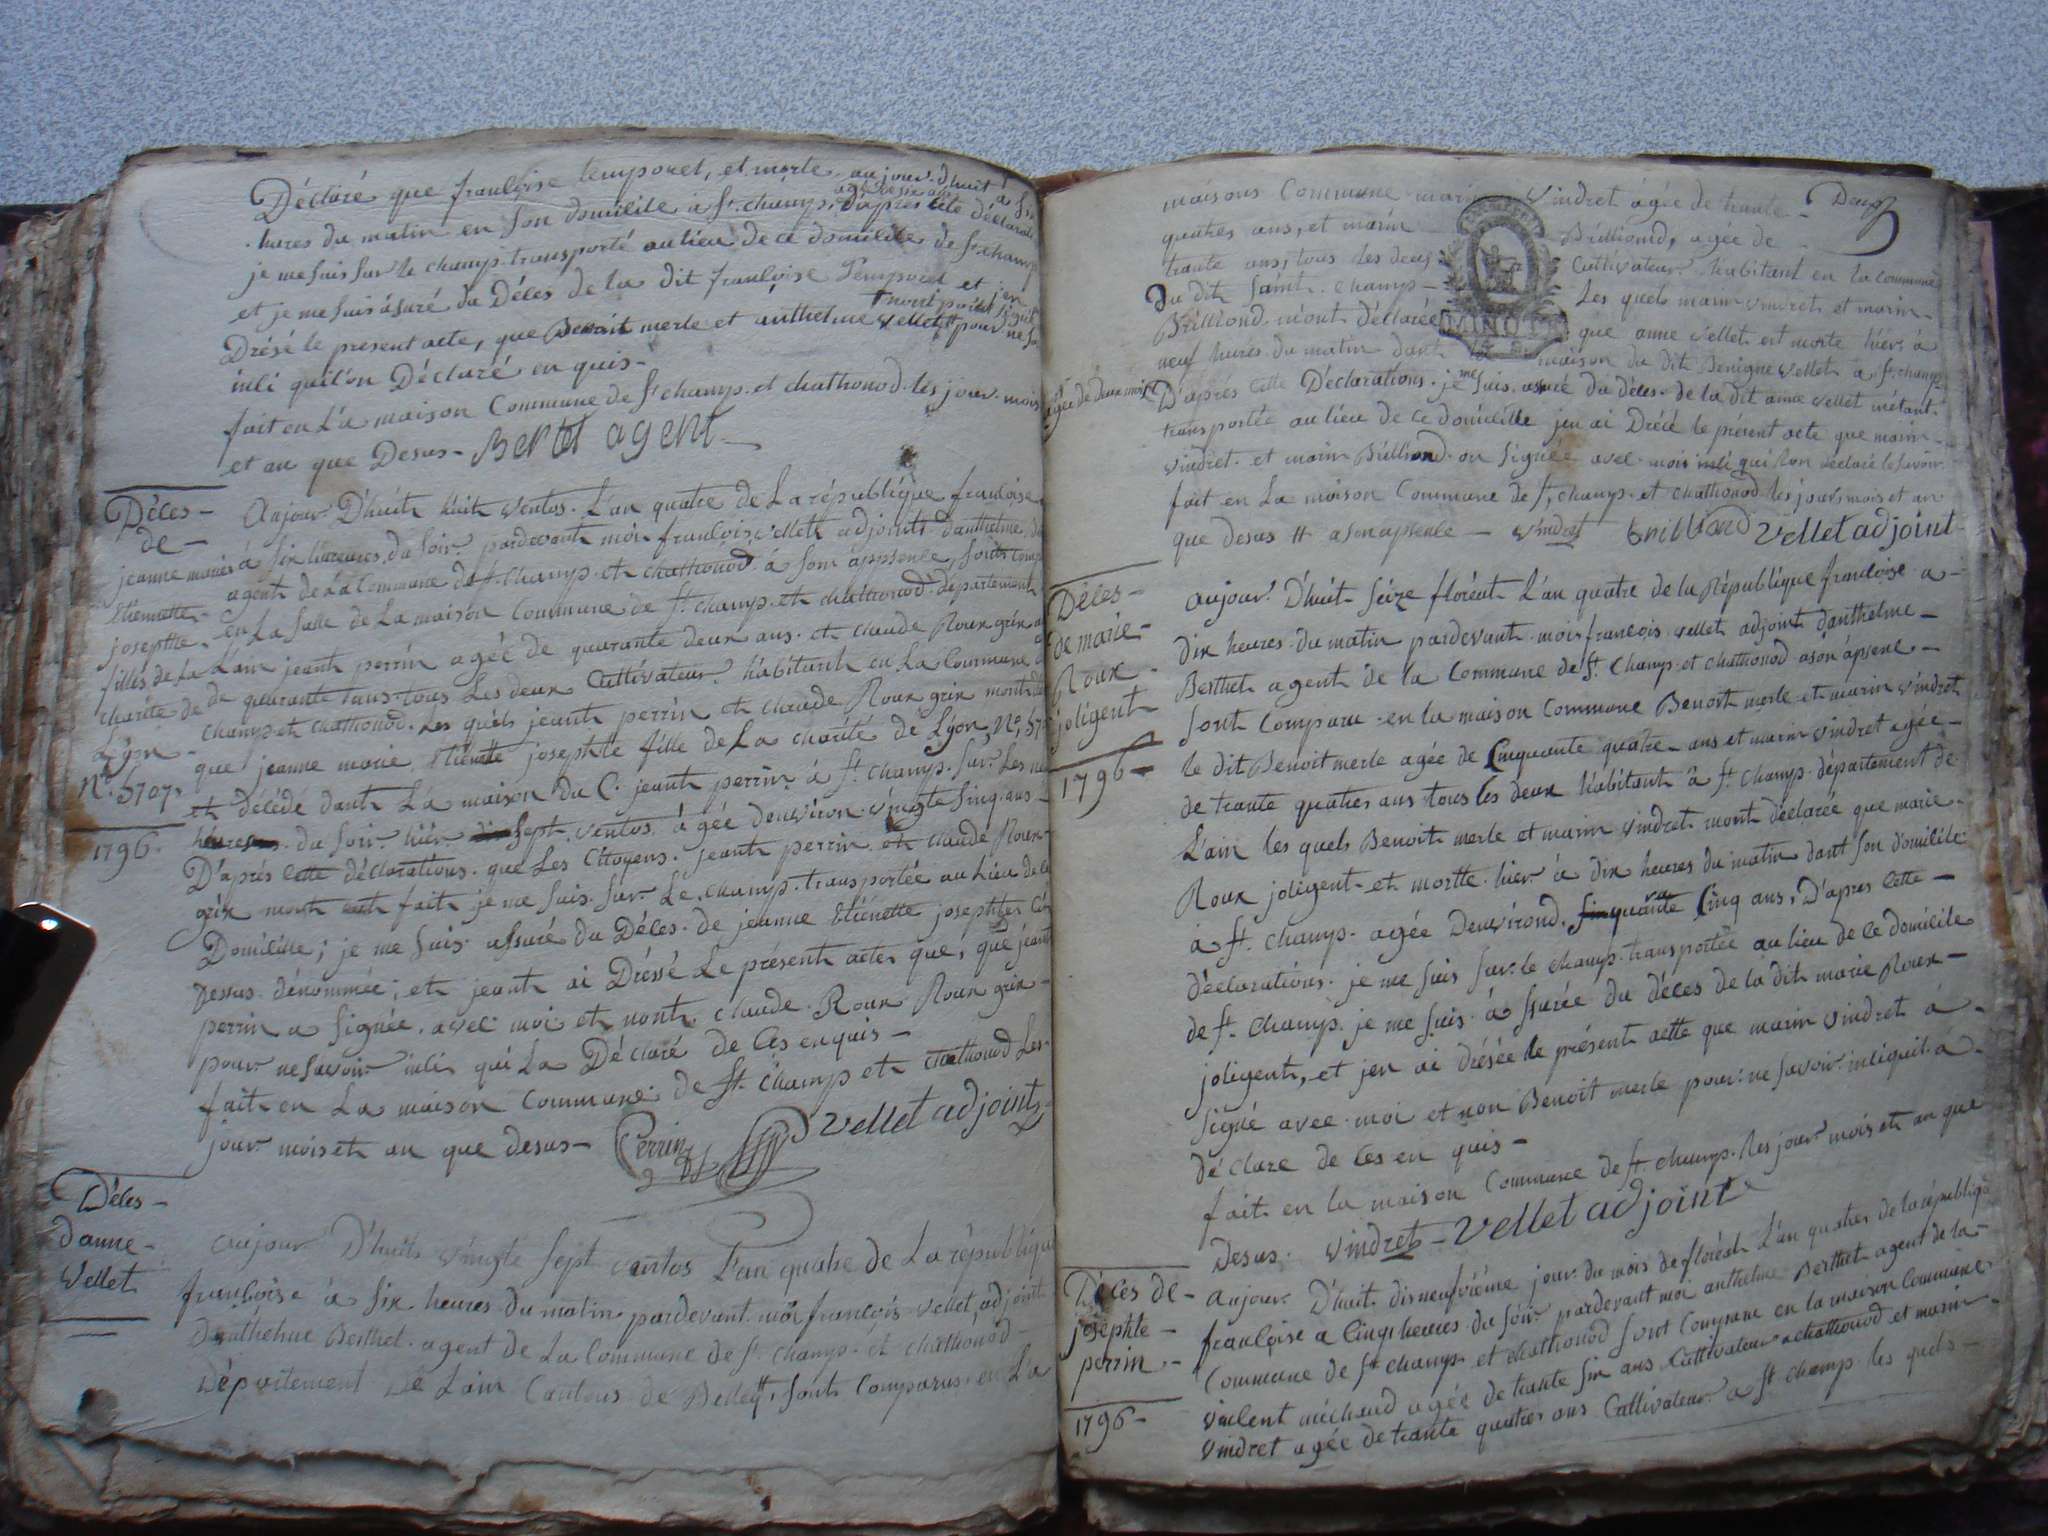 Déclaré que françoise temporel, et morte aujour d'huit à six
agée de six ans
heures du matin en son domicile a St. champ, d'après cete déclarat
je me suis sur le champ transporté au lieu de ce domicille de St champ
et je me suis ásuré du Déces de la dit françoise Temporel et jen
Drésé le present acte, que Benoit merle et anthelme vellet pour ne sa
n'ont point signé
inli quil'on Déclaré en quis-
fait en La maison Commune de St champ et chathonod les jour mois
et an que Desus- Bertet agent
Déces-
de-
jeanne marie
Etiennette-
josephte-
filles de La
charite de
Lÿon-
No. 5707.
1796.
aujour D'huit huit ventos L'an quatre de La république françoise
à six heures du soir pardevant moi françois vellet adjoint danthelme
agent de La Commune de St. champ et chathonod à son apssence, sont comp
en La salle de La maison Commune de St champ et chathonod département
L'ain jeant perrin agée de quarante deux ans et claude Roux grix a
de quarante ans tous Les deux Cultivateur habitant en La Commune d
champ et chathonod. Les quels jeant perrin et claude Roux grix mont dé
que jeanne marie Etiennette josephte fille de La charité de Lyon, No, 57
et décédé dant La maison du C. jeant perrin à St champ sur Les ne
heures du soir hier sept ventos, agée denviron vingte sinq ans-
D'aprés cette déclarations que Les Citoyens jeant perrin et claude Roux-
grix mont fait je me suis sur Le champ transportée au Lieu de ce
Domicile; je me suis assuré du Déces de jeanne Etiénette josephte Ci
Dessus dénommée; et jeant ai Dréssé Le présent actes que, que jeant
perrin a signée avec moi et nont claude Roux Roux grix-
pour ne savoir inli qui La Déclaré de Ces enquis-
fait en La maison Commune de St. champ et chathonod Les
jour mois et an que desus- Perrin vellet adjoint
Déces-
d'anne-
Vellet
aujour D'huit vingte sept ventos L'an quatre de La républiqu
françoise à six heures du matin pardevant moi françois vellet adjoint
Danthelme Berthet agent de La Commune de St. champ et chathonod-
Département de Lain Cantons de Belleÿ, sont Comparus en La
Deux
maisons Commune marin vindret agée de trante-
quatres ans, et marin Brilliond, agée de
trante ans, tous les deux Cultivateur habitant en la commune
Du dit saint champ- Les quels marin vindret et marin-
Brilliond m'ont déclarée que anne vellet est morte hier à
MINUTE
neuf heures du matin dant la maison du dit Benigne vellet à St. champ
agée de deux mois
D'après cette Déclarations je me suis assuré du déces de la dit anne vellet métant
transportée au lieu de ce domicille jen ai Drécé le présent acte que marin-
vindret et marin Brilliond on signée avec moi inli qui lon declaré le savoir
fait en La maison Commune de St. champ et chathonod les jour mois et an
que desus # a son apsence- Vindret brilliond vellet adjoint
Déces-
de marie-
Roux-
joligent
1796-
aujour D'huit seize floréal L'an quatre de la République francoise a-
dix heures du matin pardevant moi francois vellet adjoint danthelme-
Berthet agent de la Commune de St. champ et chathonod a son apsene-
sont Comparu en la maison Commune Benoit merle et marin vindret
le dit Benoit merle agée de Cinquante quatre ans et marin vindret agée-
de trante quatres ans tous les deux habitant à St. champ département de
L'ain les quels Benoit merle et marin vindret mont déclarée que marie-
Roux joligent et mortte hier à dix heures du matin dant son domicile
à St. champ agée Denvirond Cinq ans, D'apres Cette-
déclarations je me suis sur le champ transportée au lieu de ce domicile
de St. champ je me suis á ssurée du déces de la dit marie Roux-
joligent, et jen ai drésée le présent actte que marin vindret à-
signé avec moi et non Benoit merle pour ne savoir inliquil á-
déclare de Ces en quis-
fait en la maison Commune de St. champ les jour mois et an que
Desus. Vindret- Vellet adjoint
Déces de-
josephte-
perrin-
1796-
aujour D'huit disneufvième jour du mois de floréal L'an quatres de la républiqe
françoise a Cinq heures du soir pardevant moi anthelme Berthet agent de la-
Commune de St champ et chathonod sont Comparu en la maison Commune
vinlent michaud agée de trante six ans Cultivateur a chathonod et marin-
vindret agée de trante quatres ans Cultivateur a St champ les quels-